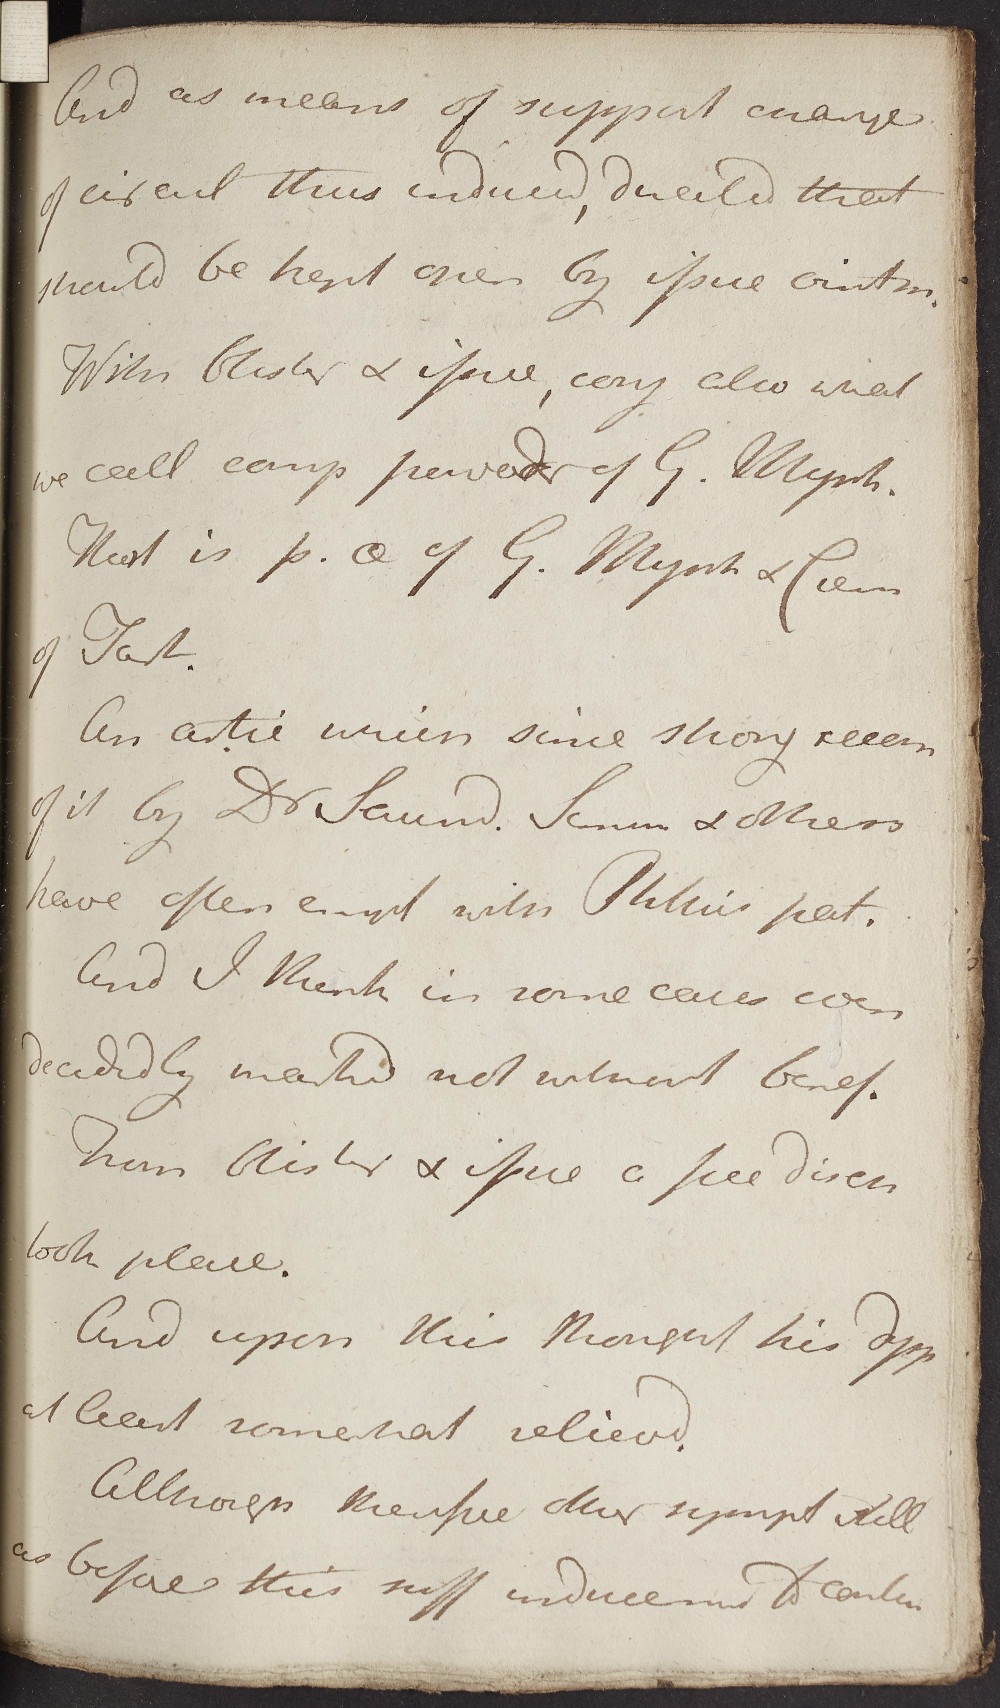 And as means of support change
of circul thus induced, directed that
should be kept open by issue ointm.
With blister & issue, conj also what
we call comp powder of G. Myrrh.
That is p. æ of G. Myrrh & Crem
of Tart.
An artic which since strong recom
of it by Dr Saund. Simm & others
have often empl with Phthisis pat.
And I think in some cases even
decidedly marked not without benef.
From blister & issue a free disch
took place.
And upon this thought his dysp
at least somewhat relieved.
Although therefore other sympt still
as before this suff inducemnt to contin